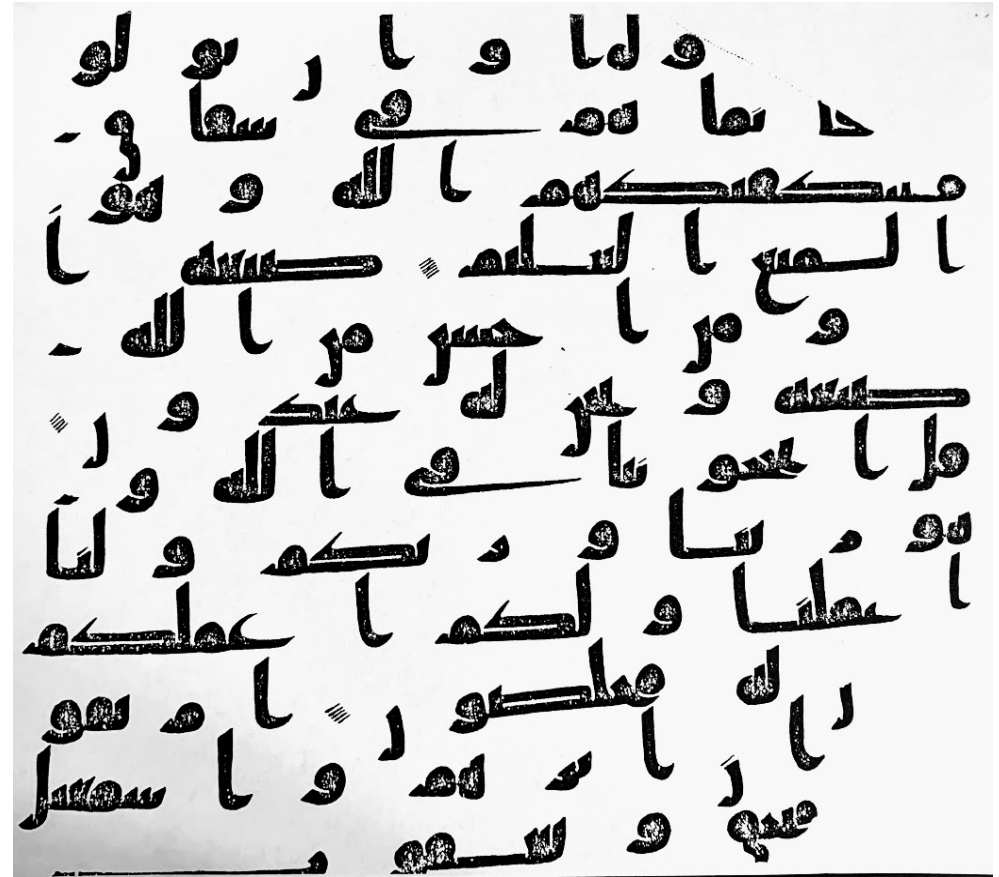 وا وان تولو
ا فانما هم في شقاق
فسيكفيكهم الله وهو
السميع العليم صبغه ا
لله ومن احسن من الله
صبغه ونحن له عبدون
قل اتحاجوننا في الله و
هو ربنا وربكم ولنا
اعملنا ولكم اعملكم
ونحن له مخلصون ام يقو
لون ان ابرهم واسمعيل
واسحق ويعقوب